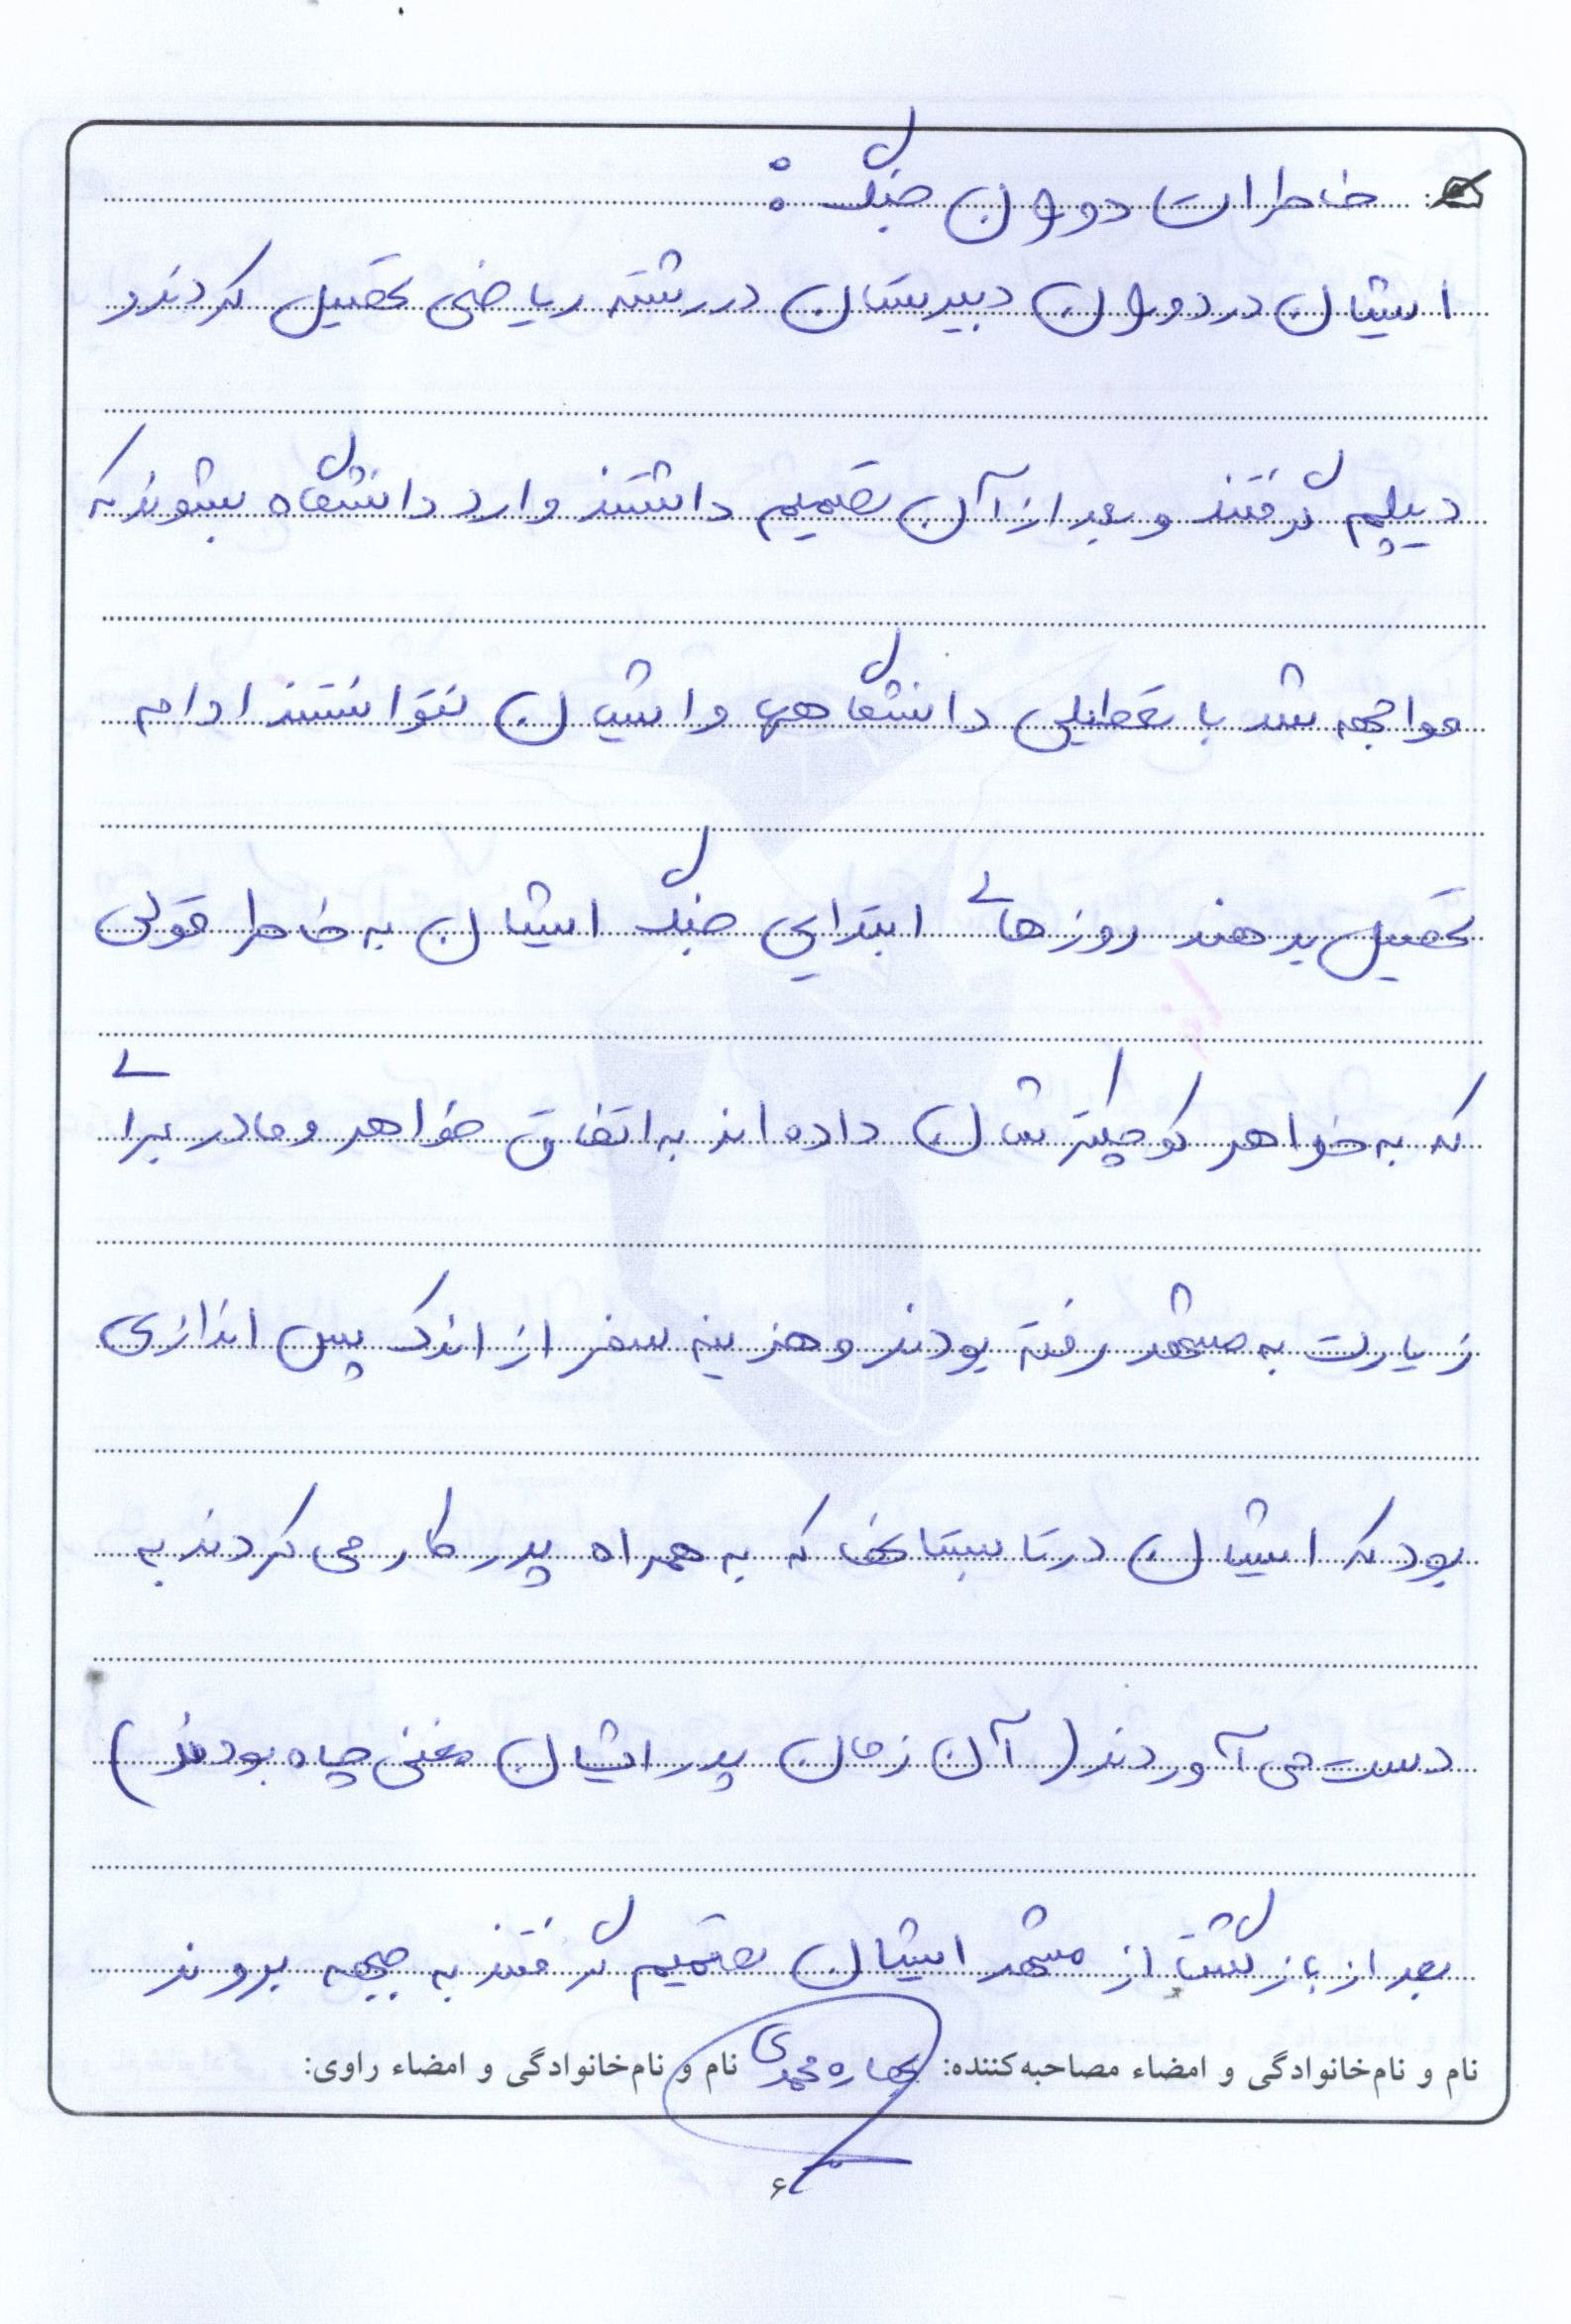 خاطرات دوران جنگ :
ایشان در دوران دبیرستان در رشته ریاضی تحصیل کردند و
دیپلم گرفتند و بعد از آن تصمیم داشتند وارد دانشگاه بشوند که
مواجهه شد با تعطیلی دانشگاهها و ایشان نتوانستند ادامه
تحصیل بدهند روزهای ابتدایی جنگ ایشان به خاطر قولی
که به خواهر کوچکترشان داده اند به اتفاق خواهر و مادر برای
زیارت به مشهد رفته بودند و هزینه سفر از اندک پس اندازی
بود که ایشان در تابستانی که به همراه پدر کار می کردند به
دست می آوردند ( آن زمان پدر ایشان مغنی چاه بودند )
بعد از بازگشت از مشهد ایشان تصمیم گرفتند به جبهه بروند
نام و نام‌خانوادگی و امضاء مصاحبه‌کننده: بهاره محمدی نام و نام‌خانوادگی و امضاء راوی:
۶